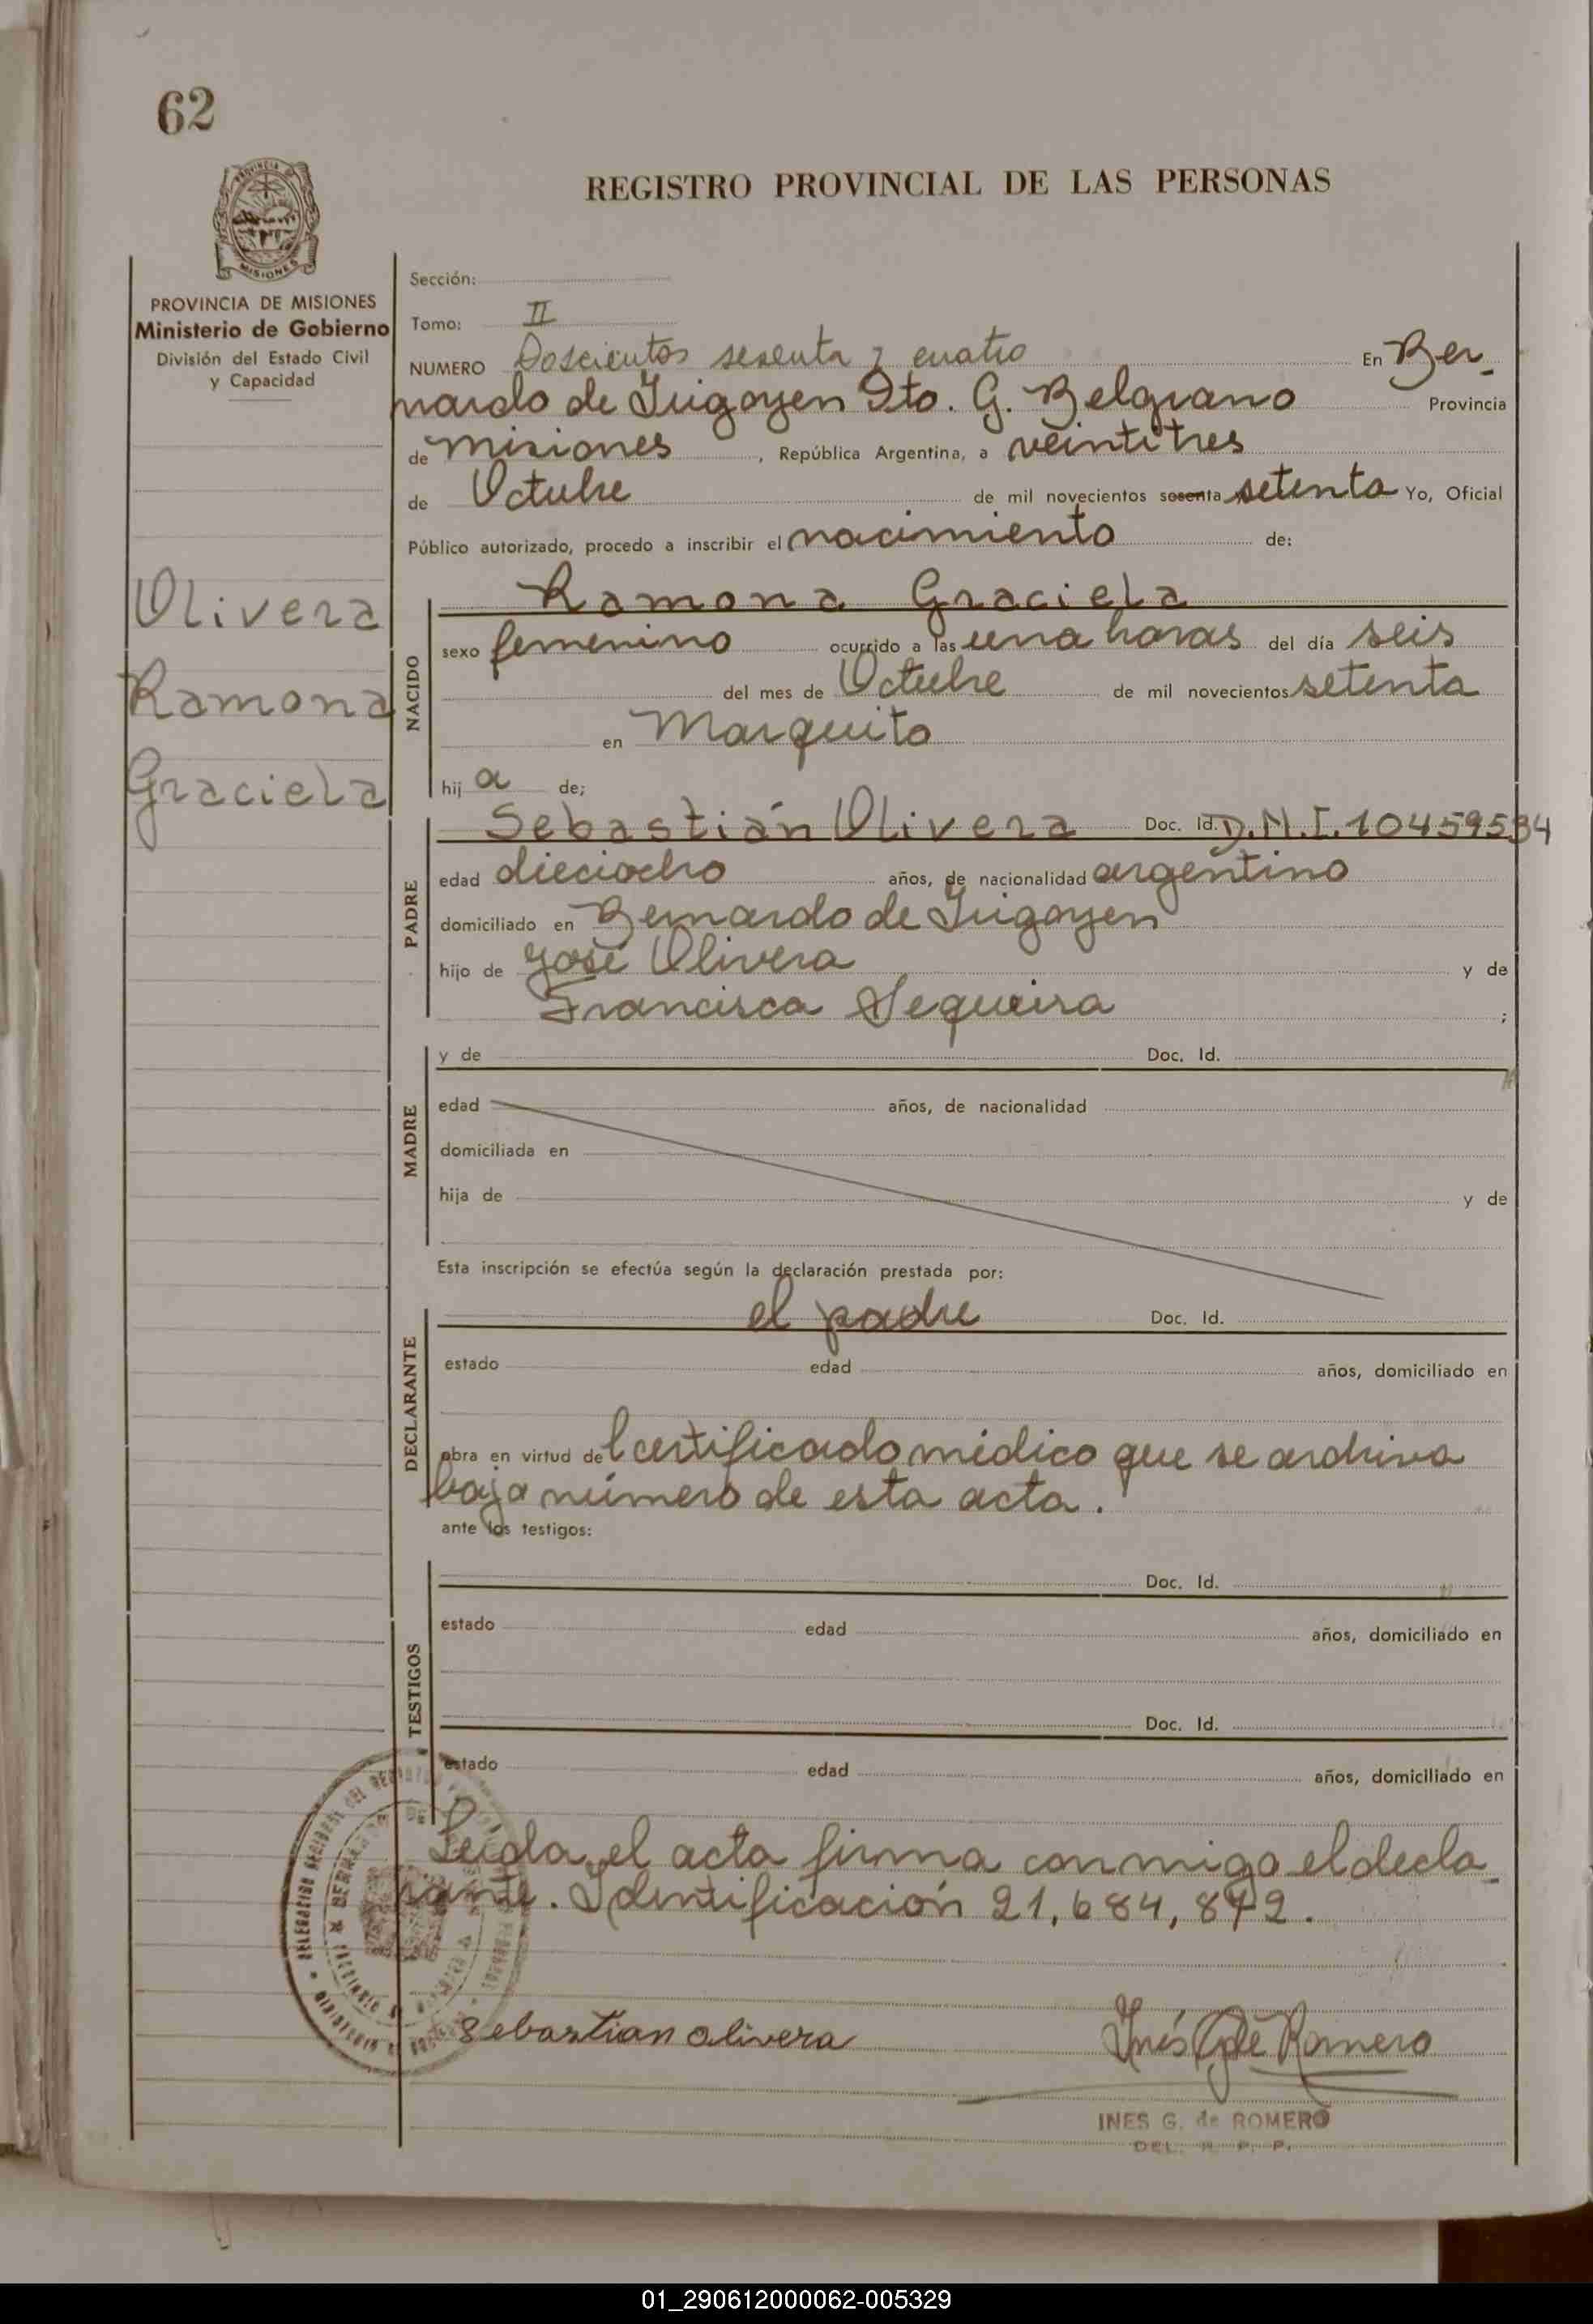 62
REGISTRO PROVINCIAL DE LAS PERSONAS
PROVINCIA DE MISIONES
Ministerio de Gobierno
División del Estado Civil
y Capacidad
Olivera
Ramona
Graciela
Sección:
Tomo: II
NUMERO Doscientos sesenta y cuatro En Ber-
nardo de Irigoyen Dto. G. Belgrano Provincia
de Misiones, República Argentina, a veintitres
de Octubre de mil novecientos sesenta setenta Yo, Oficial
Público autorizado, procedo a inscribir el nacimiento de:
NACIDO
Ramona Graciela
sexo femenino ocurrido a las una horas del día seis
del mes de Octubre de mil novecientos setenta
en Marquito
hij a de;
PADRE
Sebastián Olivera Doc. Id. D.N.I. 10459534
edad dieciocho años, de nacionalidad argentino
domiciliado en Bernardo de Irigoyen
hijo de José Olivera y de
Francisca Sequeira ;
MADRE
y de Doc. Id.
edad años, de nacionalidad
domiciliada en
hija de y de
Esta inscripción se efectúa según la declaración prestada por:
DECLARANTE
el padre Doc. Id.
estado edad años, domiciliado en
obra en virtud del certificado médico que se archiva
bajo número de esta acta.
ante los testigos:
TESTIGOS
Doc. Id.
estado edad años, domiciliado en
Doc. Id.
estado edad años, domiciliado en
Leída el acta firma conmigo el decla-
rante. Identificación 21,684,872.
Sebastian Olivera
Inés G de Romero
INES G. de ROMERO
DEL. R. P. P.
01_290612000062-005329